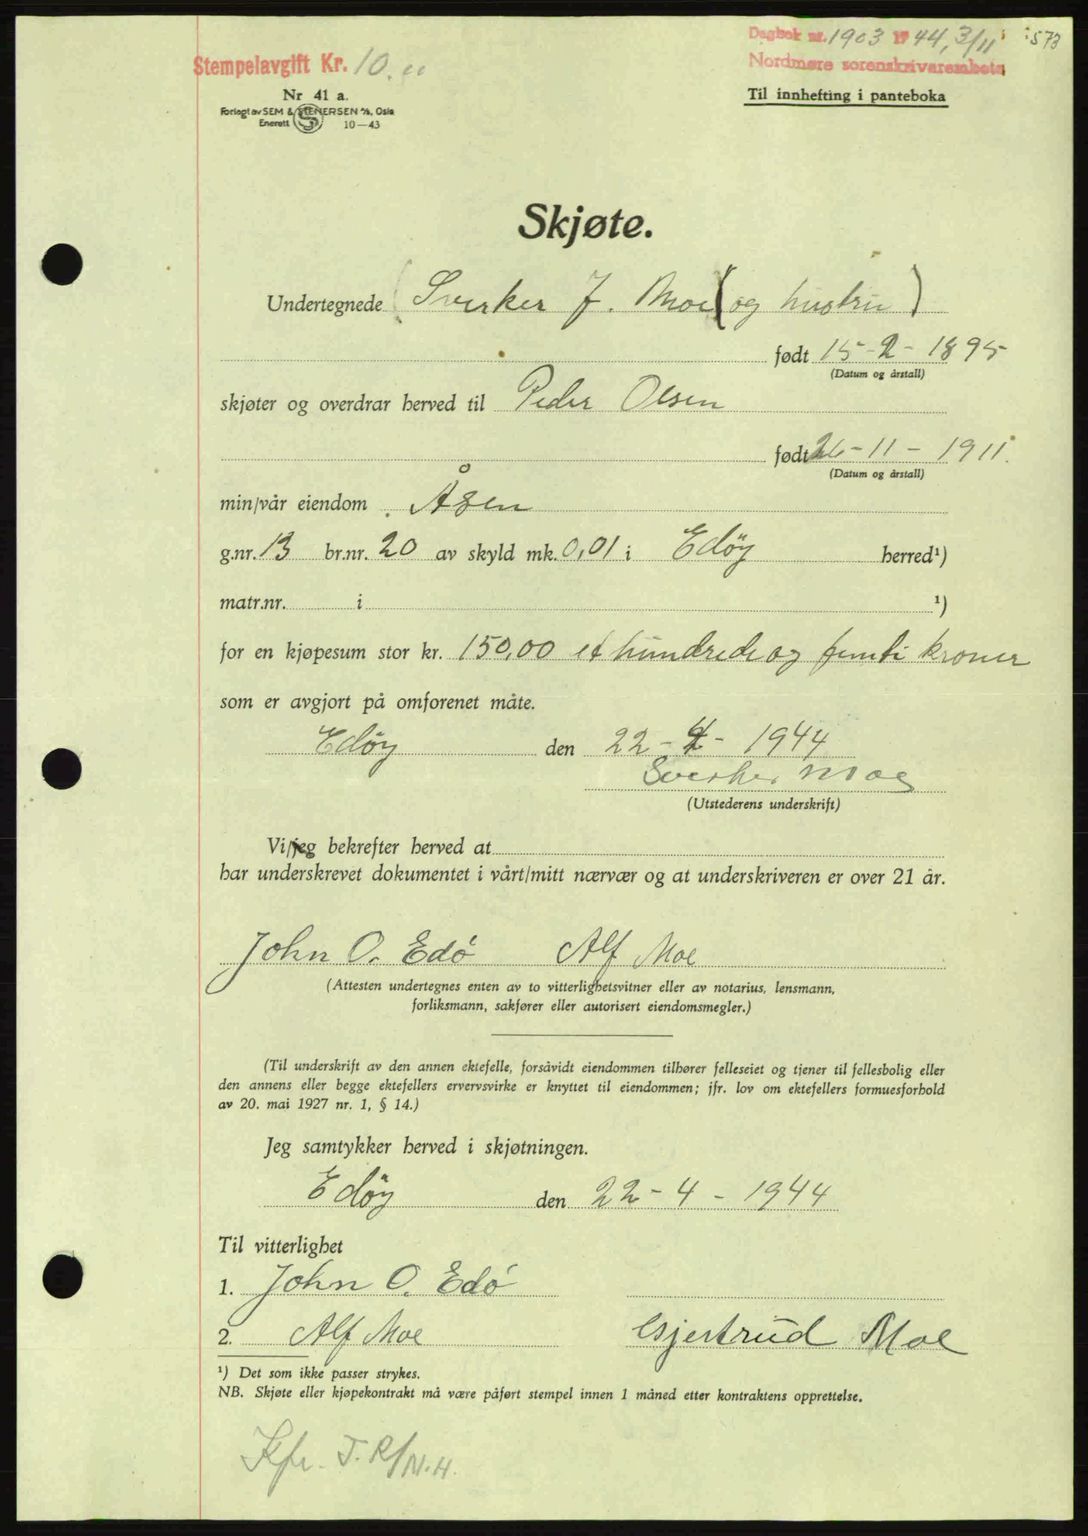 Stempelavgift Kr. 10.
Dagbok nr. 1903 1944, 3/11 573
Nordmøre sorenskriverembete
Nr 41 a.
Forlagt av SEM & STENERSEN A/S, Oslo
Enerett 10—43
Til innhefting i panteboka
Skjøte.
Undertegnede (Sverker J. Moe (og hustru)
født 15-2-1895
(Datum og årstall)
skjøter og overdrar herved til Peder Olsen
født 26-11-1911.
(Datum og årstall)
min/vår eiendom Åsen
g.nr. 13 br.nr. 20 av skyld mk. 0,01 i Edøy herred¹)
matr.nr. i ¹)
for en kjøpesum stor kr. 150,00 et hundrede og femti kroner
som er avgjort på omforenet måte.
Edøy den 22-4-1944
Sverker Moe
(Utstederens underskrift)
Vi/jeg bekrefter herved at
har underskrevet dokumentet i vårt/mitt nærvær og at underskriveren er over 21 år.
John O. Edö Alf Moe
(Attesten undertegnes enten av to vitterlighetsvitner eller av notarius, lensmann,
forliksmann, sakfører eller autorisert eiendomsmegler.)
(Til underskrift av den annen ektefelle, forsåvidt eiendommen tilhører felleseiet og tjener til fellesbolig eller
den annens eller begge ektefellers ervervsvirke er knyttet til eiendommen; jfr. lov om ektefellers formuesforhold
av 20. mai 1927 nr. 1, § 14.)
Jeg samtykker herved i skjøtningen.
Edøy den 22-4-1944
Til vitterlighet
1. John O. Edö
2. Alf Moe Gjertrud Moe
¹) Det som ikke passer strykes.
NB. Skjøte eller kjøpekontrakt må være påført stempel innen 1 måned etter kontraktens opprettelse.
Kfr. J.R/N.H.